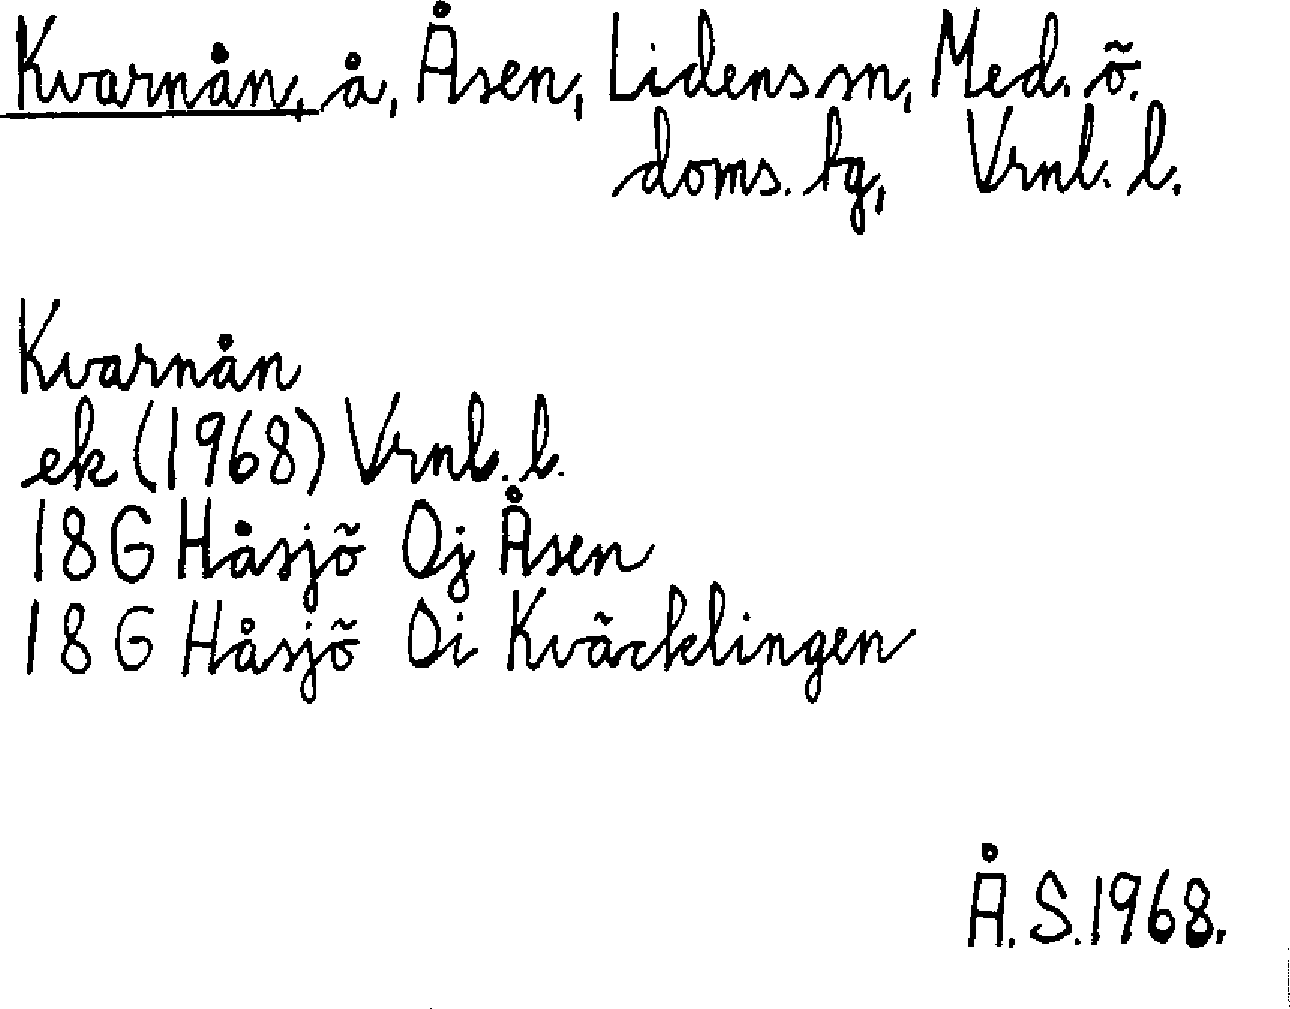 Kvarnån, å, Åsen, Lidens sn, Med. ö.
doms. hg, Vrnl. l.
Kvarnån
ek (1968) Vrnl. l.
18G Håsjö Oj Åsen
18G Håsjö Oi Kväcklingen
Å.S.1968.